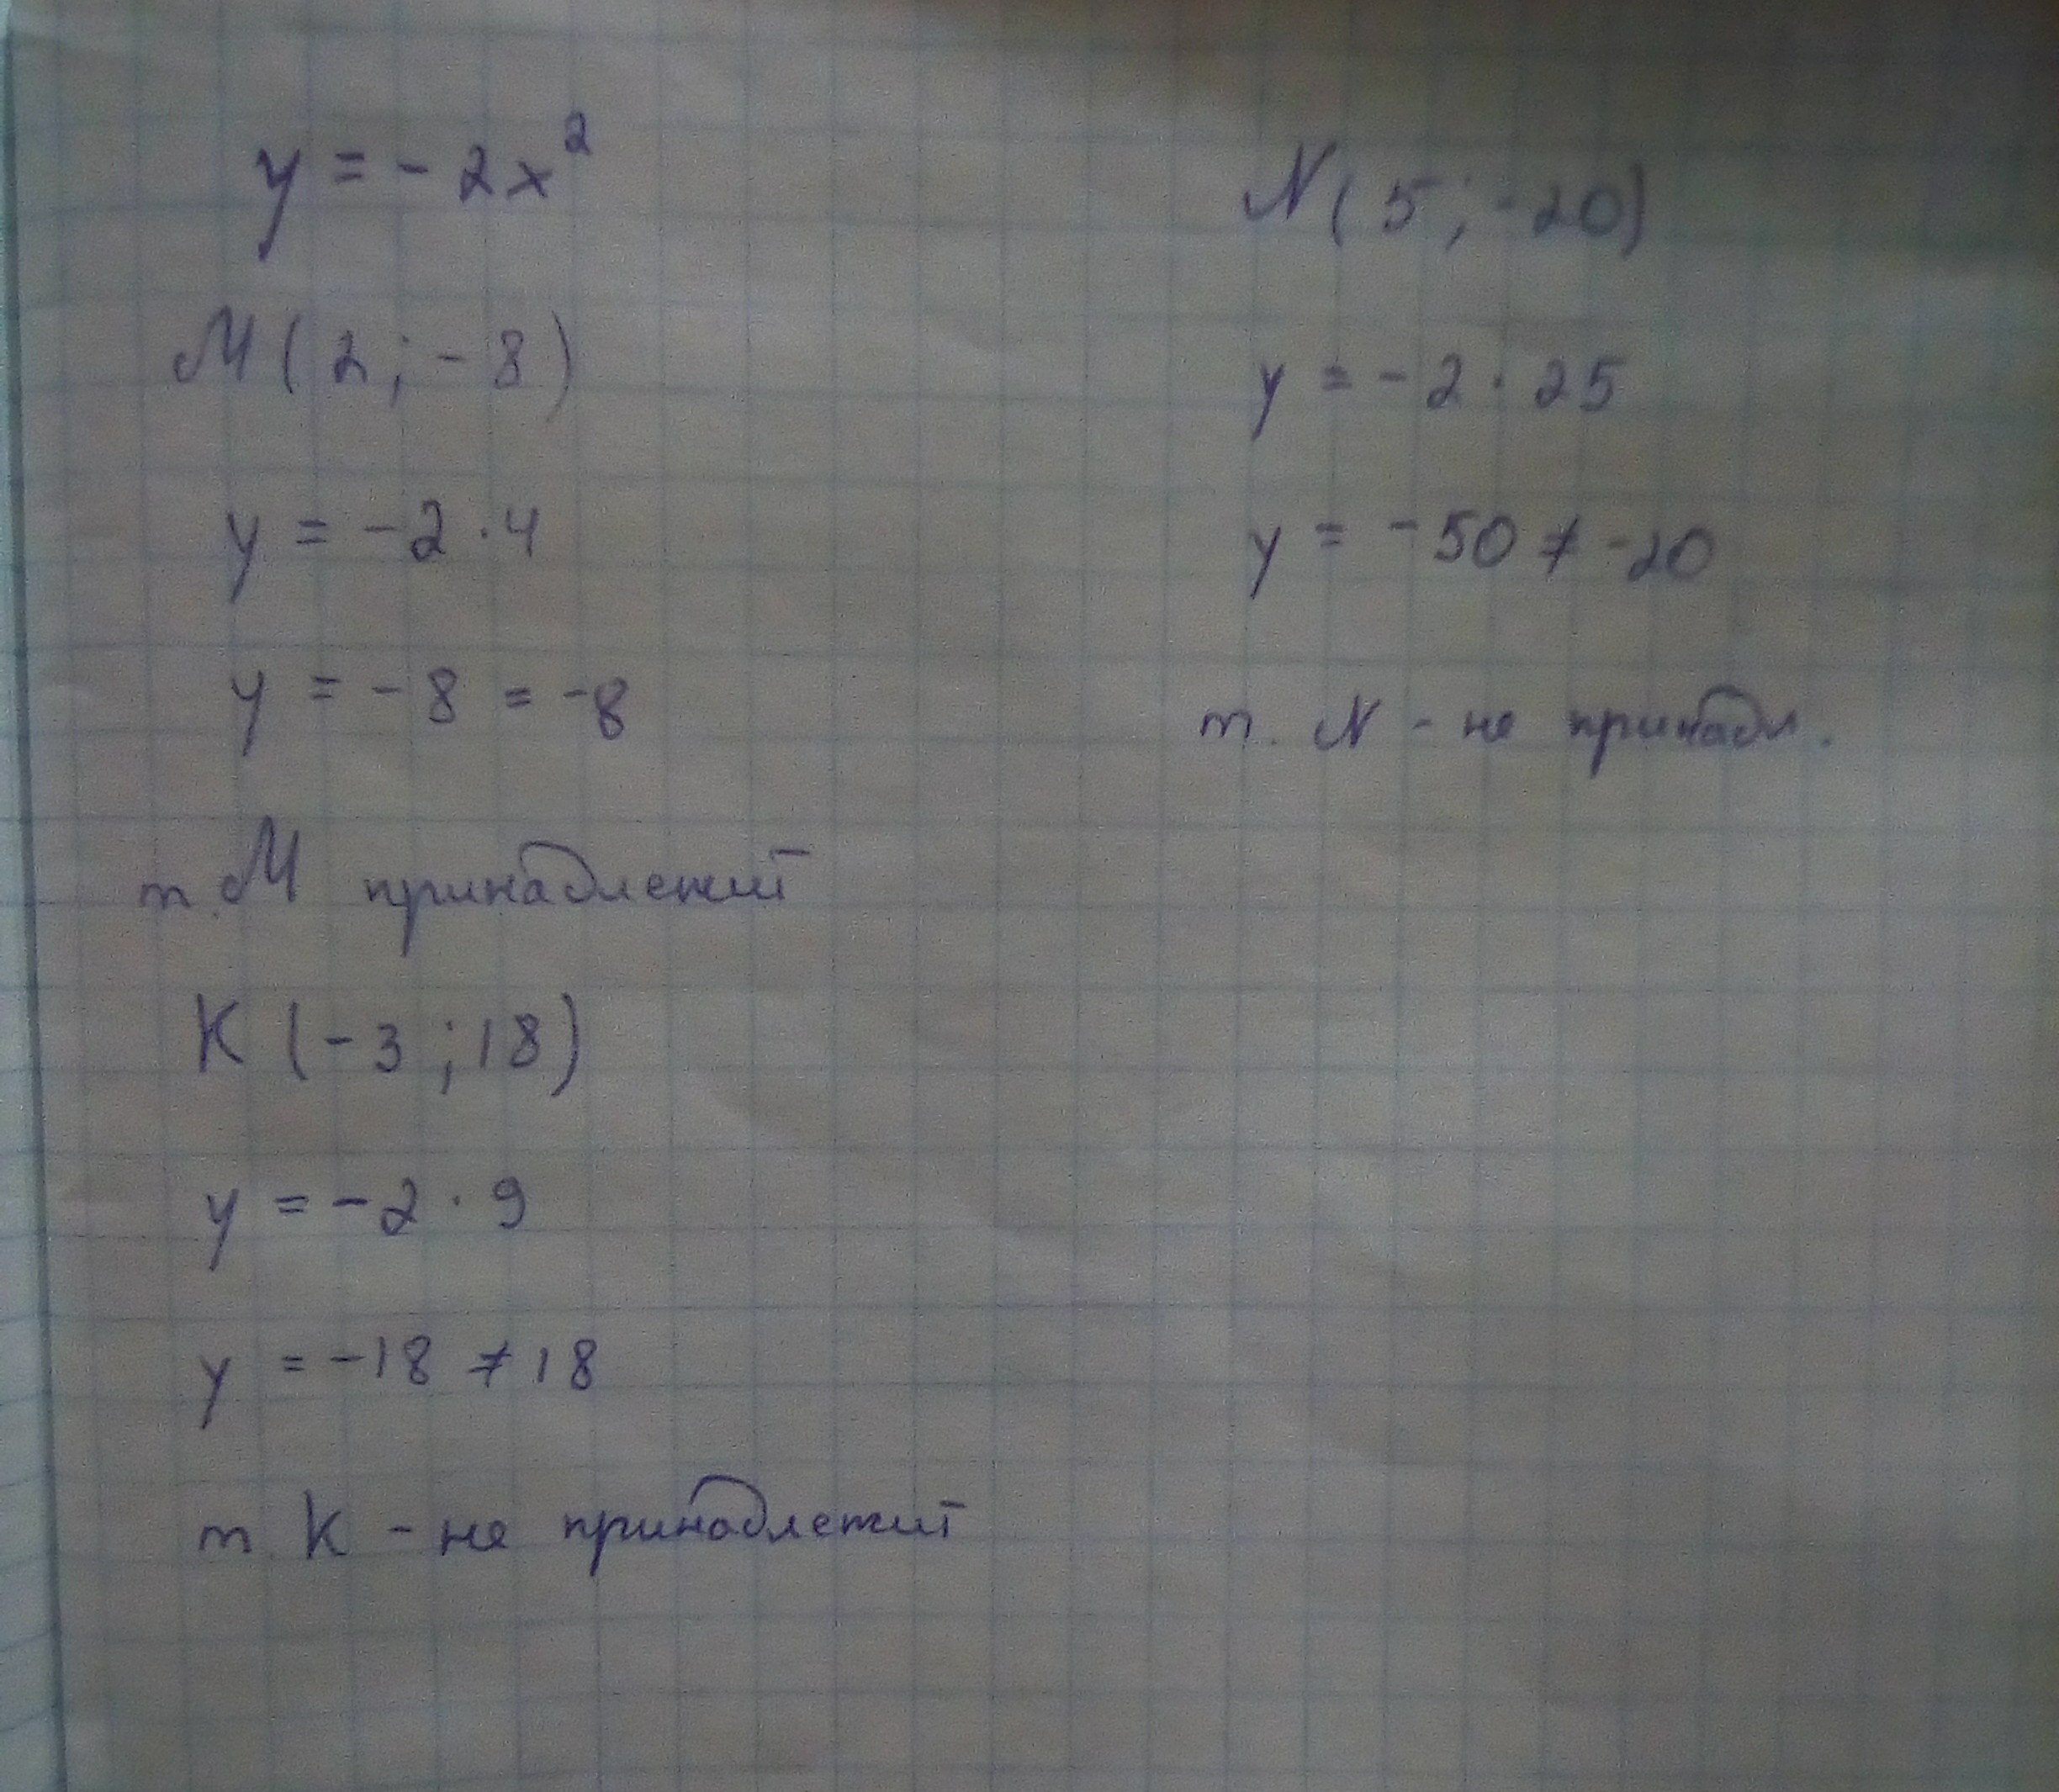 y = - 2x²
M ( 2 ; - 8 )
y = - 2 · 4
y = - 8 = -8
т. M принадлежит
K ( - 3 ; 18 )
y = - 2 · 9
y = -18 ≠ 18
т. K - не принадлежит
N ( 5 ; -20 )
y = - 2 · 25
y = - 50 ≠ -20
т. N - не принадл.